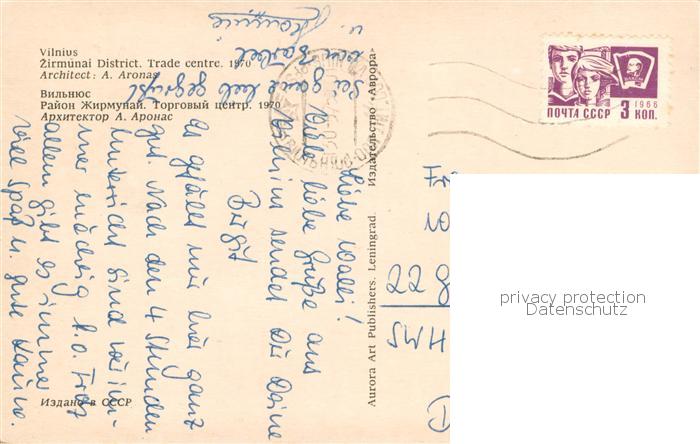 Vilnius
Žirmúnai District. Trade centre. 1970
Architect: A. Aronas
Вильнюс
Район Жирмунай. Торговый центр. 1970
Архитектор А. Аронас
Издано в СССР
Aurora Art Publishers. Leningrad.
Издательство «Аврора»
1966
ПОЧТА СССР 3 КОП.
Liebe Walli!
Viele liebe Grüße aus
Vilnius sendet Dir Deine
Birgit
Es gefällt mir hier ganz
gut. Nach den 4 Stunden
Unterricht sind wir
mächtig k.o. Trotz
allem gibt es immer
viel Spaß u. gute Laune.
Sei ganz lieb gegrüßt
von
u.
228
D
privacy protection
Datenschutz